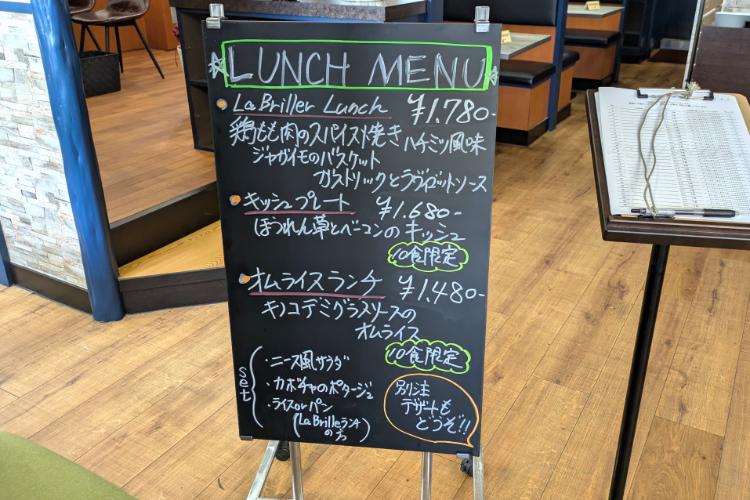 LUNCH MENU
La Briller Lunch ¥1,780-
鶏もも肉のスパイス焼き ハチミツ風味
ジャガイモのバスケット
ガストリックとラヴィゴットソース
キッシュプレート ¥1,680-
ほうれん草とベーコンのキッシュ
10食限定
オムライスランチ ¥1,480-
キノコデミグラスソースの
オムライス
10食限定
set
・ニース風サラダ
・カボチャのポタージュ
・ライスorパン
(La Brilleランチ
のみ)
別注
デザートも
どうぞ!!